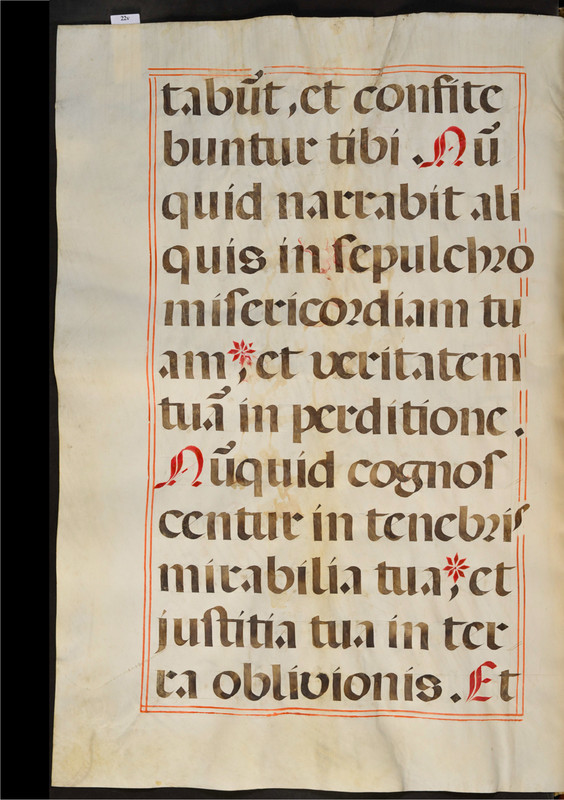 22v
tabũt, et confite
buntur tibi. Nũ
quid narrabit ali
quis in ſepulchro
miſericordiam tu
am *, et veritatem
tuã in perditione.
Nũquid cognoſ
centur in tenebris
mirabilia tua *, et
juſtitia tua in ter
ra oblivionis. Et